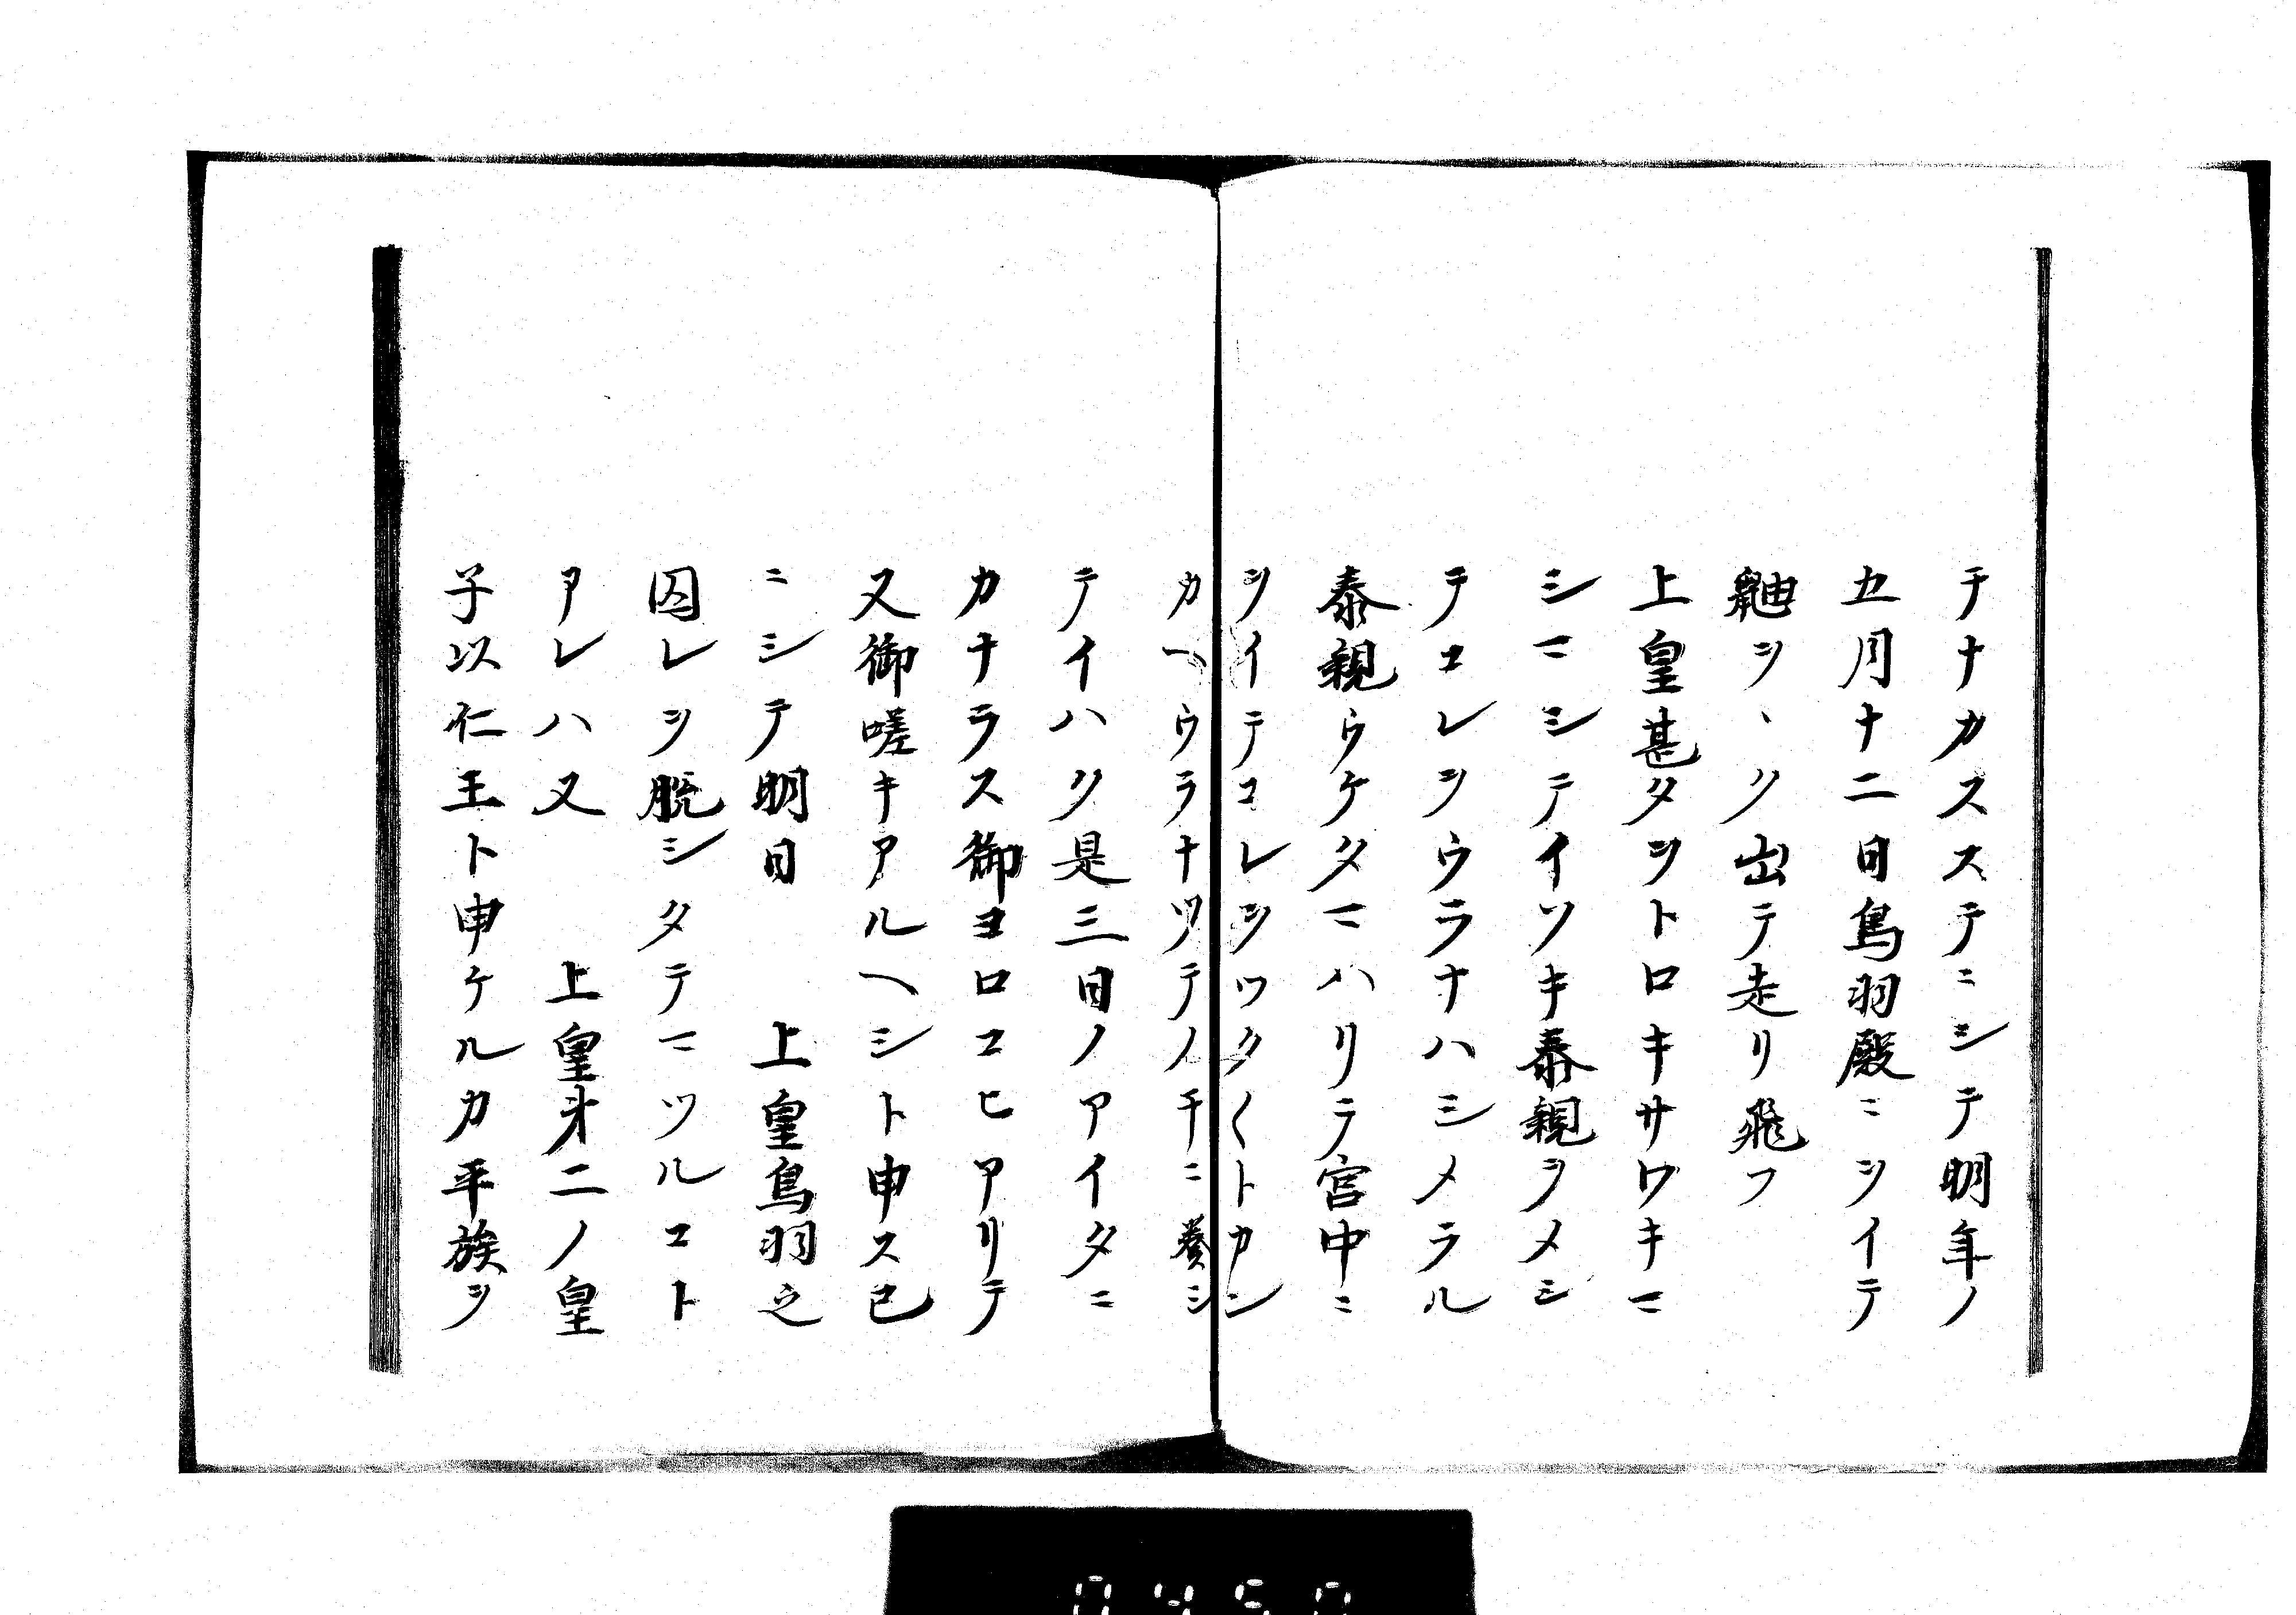 チナカスステニシテ明年ノ
五月十二日鳥羽殿ニヲイテ
鼬ヲヽク出テ走リ飛フ
上皇甚タヲトロキサワキマ
シマシテイソキ泰親ヲメシ
テコレヲウラナハシメラル
泰親ウケタマハリテ宮中ニ
ヲイテコレヲツク〱トカン
カヘウラナツテノチニ養シ
テイハク是三日ノアイタニ
カナラス御ヨロコヒアリテ
又御嗟キアルヘシト申ス已
ニシテ明日　上皇鳥羽之
囚レヲ脱シタテマツルコト
アレハ又　上皇才二ノ皇
子以仁王ト申ケルカ平族ヲ
0450